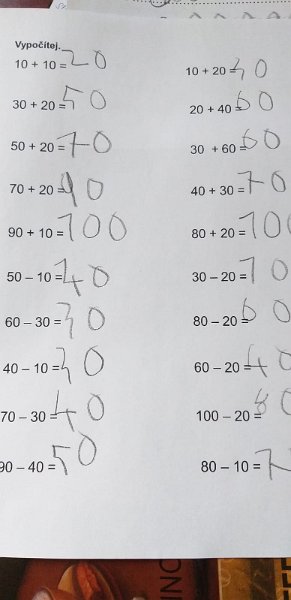 Vypočítej.
10 + 10 = 20
30 + 20 = 50
50 + 20 = 70
70 + 20 = 90
90 + 10 = 100
50 – 10 = 40
60 – 30 = 30
40 – 10 = 30
70 – 30 = 40
90 – 40 = 50
10 + 20 = 30
20 + 40 = 60
30 + 60 = 60
40 + 30 = 70
80 + 20 = 100
30 – 20 = 10
80 – 20 = 60
60 – 20 = 40
100 – 20 = 80
80 – 10 = 7